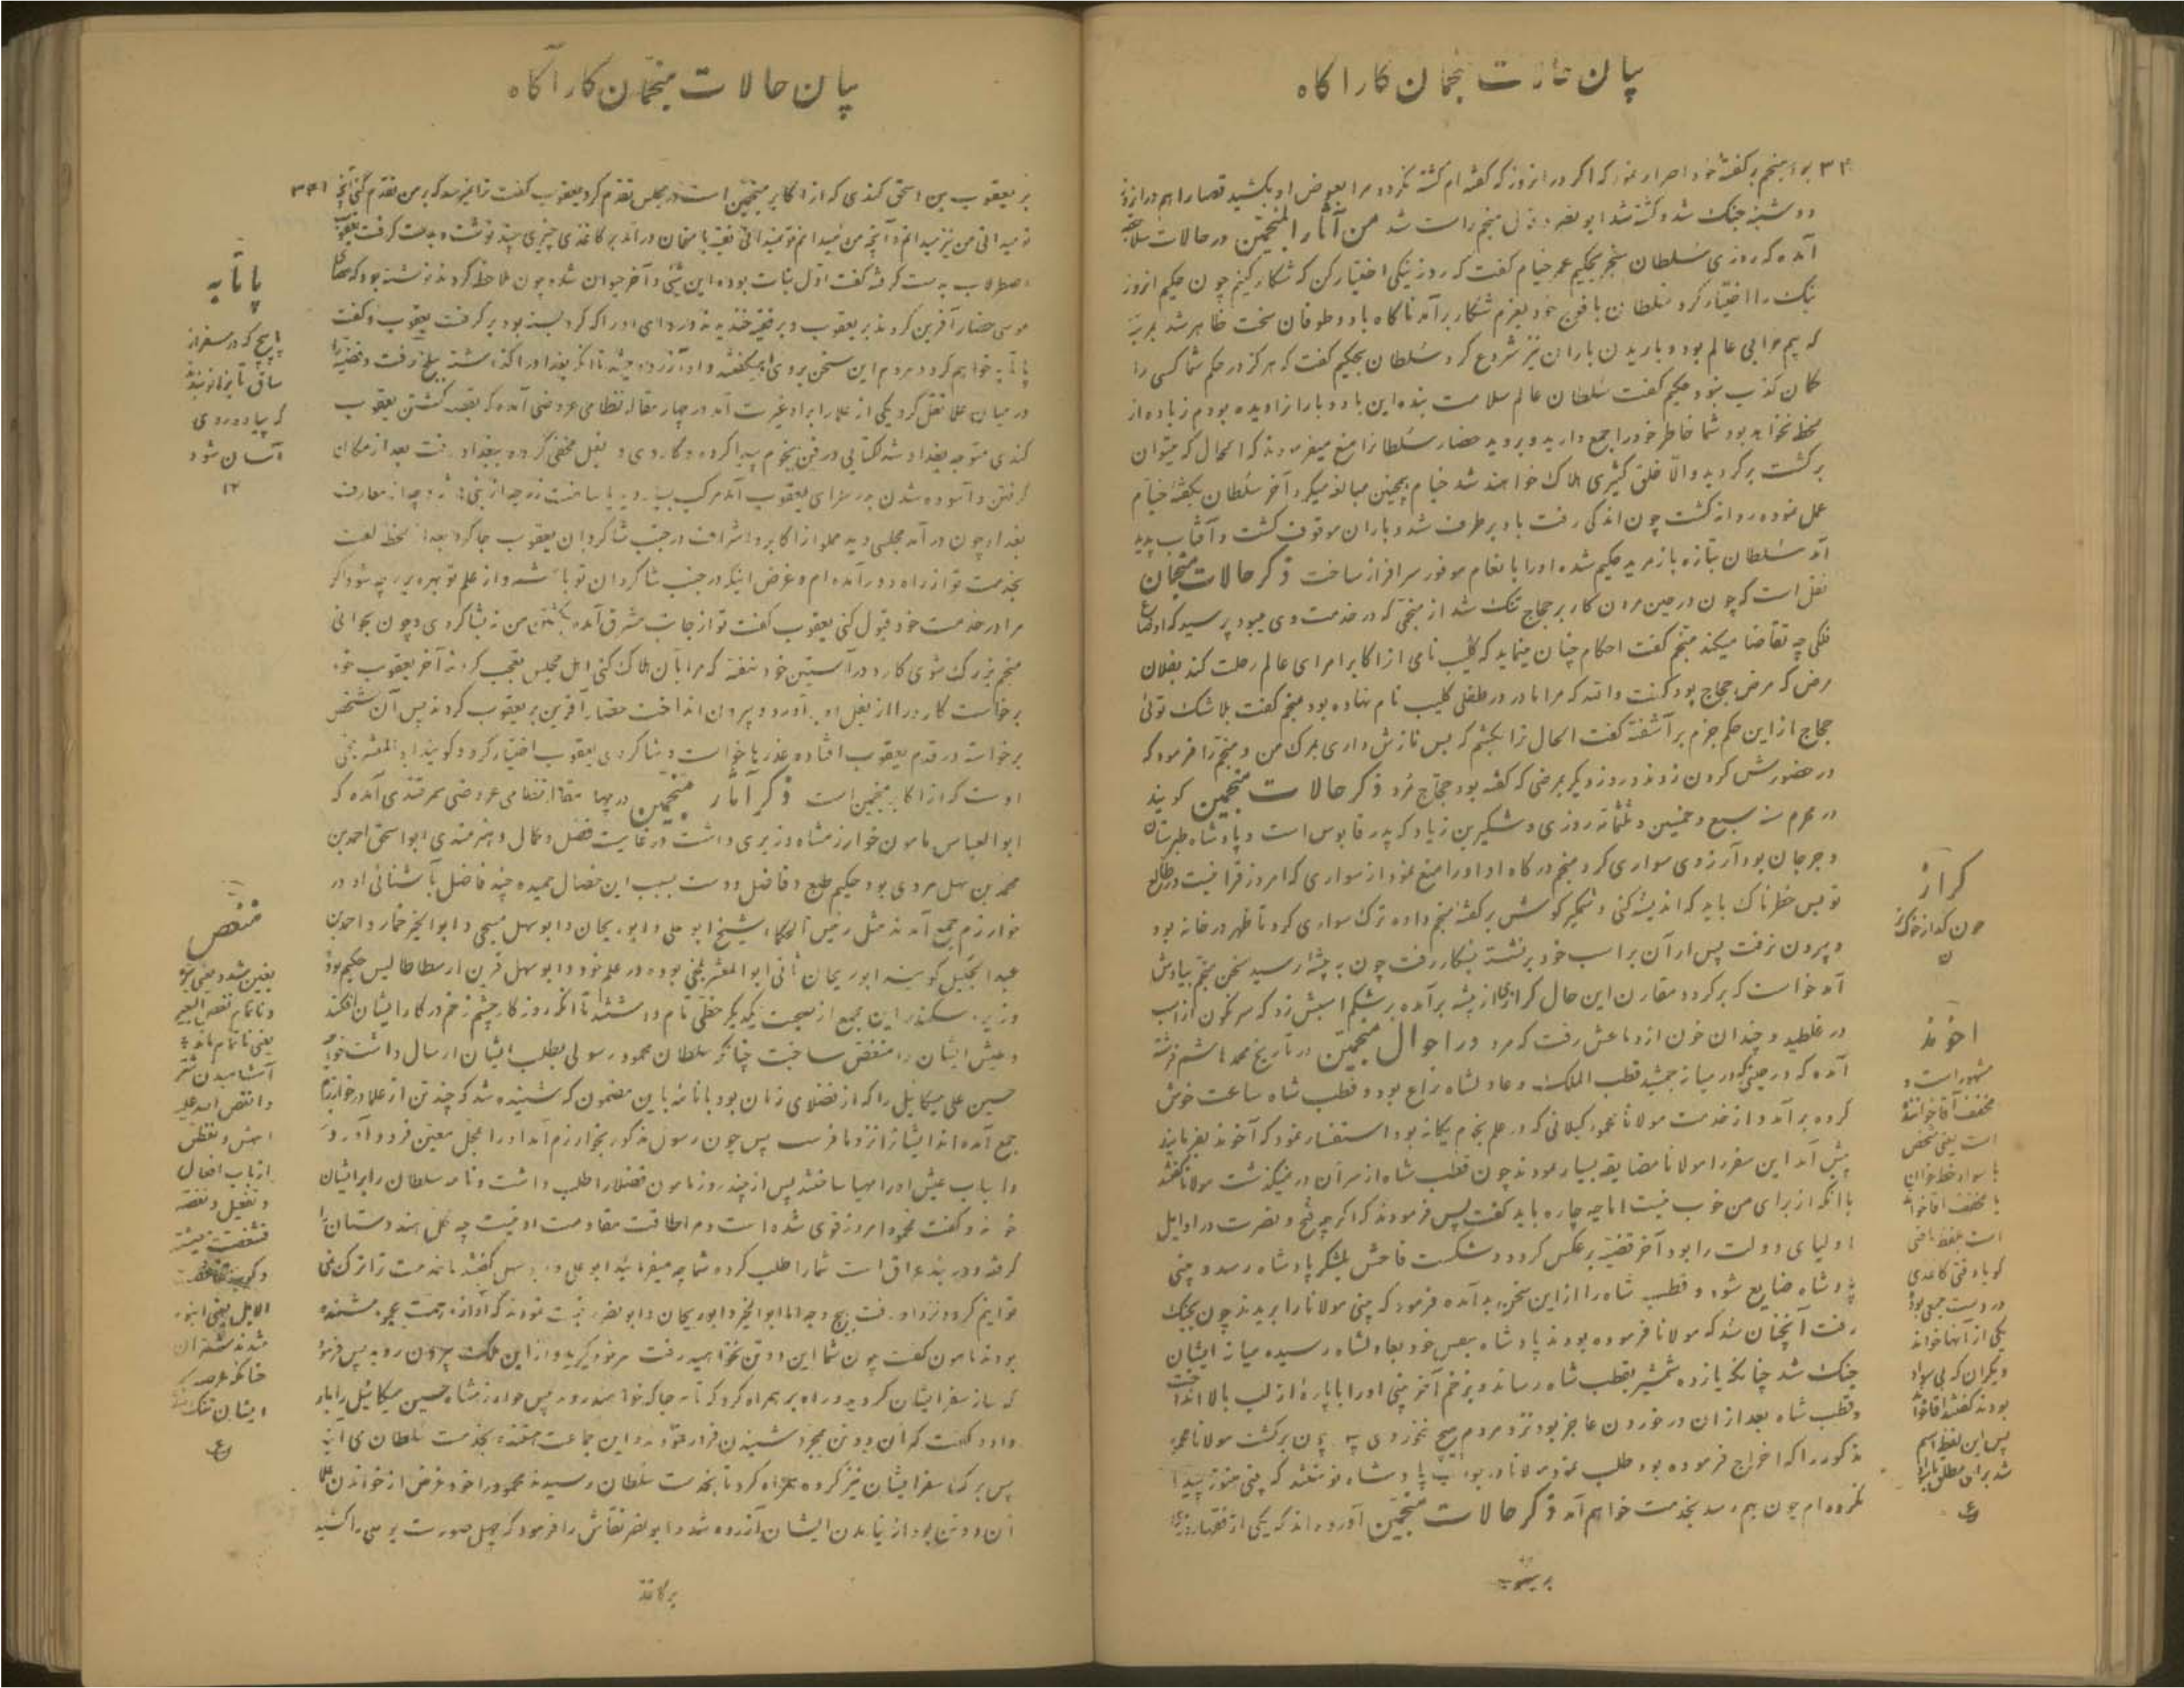 بیان حالات منجمان کارآگاه
۳۴۰
بوا منجم بر گفتهٔ خود اصرار نمود که اگر در آنروز که گفته‌ام کشته نگردد مرا بعوض او بکشید قضا را هم در آنروز
دو شنبه جنک شد و کشته شد ابونصر و قول منجم راست شد من آثار المنجمین در حالات
آمده که روزی سلطان سنجر بحکیم عمر خیام گفت که روز نیکی اختیار کن که شکار کنیم چون حکیم آنروز
نیک را اختیار کرد سلطان با فوج خود بعزم شکار برآمد ناکاه باد و طوفان سخت ظاهر شد
که بیم خرابی عالم بود و باریدن باران نیز شروع کرد سلطان بحکیم گفت که هرگز در حکم شما کسی را
گمان کذب نبود حکیم گفت سلطان عالم سلامت بنده این باد و باران را دیده بودم زیاده از
لحظه نخواهد بود شما خاطر خود را جمع دارید و بروید حضار سلطان را منع میفرمودند که الحال که میتوان
برگشت برگردید والا خلق کثیری هلاک خواهند شد خیام همچنین مبالغه میکرد آخر سلطان بگفتهٔ خیام
عمل نموده روانه گشت چون اندکی رفت باد برطرف شد و باران موقوف گشت و آفتاب پدید
آمد سلطان بتازه باز مرید حکیم شده او را بانعام موفور سرافراز ساخت ذکر حالات منجمان
نقل است که چون در حین مردن کار بر حجاج تنک شد از منجمی که در خدمت وی میبود پرسید که اوضاع
فلکی چه تقاضا میکند منجم گفت احکام چنان مینماید که کلیب نامی از اکابر امرای عالم رحلت کند بفلان
مرض که مرض حجاج بود گفت والله که مرا مادر در طفلی کلیب نام نهاده بود منجم گفت بلا شک توئی
حجاج از این حکم جزم برآشفته گفت الحال ترا بکشم که بس نازش داری بمرک من و منجم را فرمود که
در حضورش گردن زدند و روز دیگر بمرضی که گفته بود حجاج مرد ذکر حالات منجمین گویند
در محرم سنه سبع و خمسین و ثلثمائه روزی وشمگیر بن زیاد که پدر قابوس است و پادشاه طبرستان
و جرجان بود آرزوی سواری کرد منجم درگاه او او را منع نمود از سواری که امروز قرانیست در طالع
تو بس خطرناک باید که اندیشه کنی وشمگیر گوش بر گفتهٔ منجم داده ترک سواری کرد تا ظهر در خانه بود
و بیرون نرفت پس از آن بر اسب خود برنشسته بشکار رفت چون به بیشه رسید سخن منجم بیادش
آمد خواست که برگردد مقارن این حال گرازی از بیشه برآمده بر شکم اسبش زد که سرنگون از اسب
در غلطید و چندان خون از دماغش رفت که مرد در احوال منجمین در تاریخ محمد هاشم فرشته
آمده که در حینی که در میانه جمشید قطب الملک و عادلشاه نزاع بود و قطب شاه ساعت خوش
کرده برآمد و از خدمت مولانا محمود گیلانی که در علم نجوم یگانه بود استفسار نمود که آخوند بفرمایند
پیش آمد این سفر را مولانا مضایقه بسیار نمودند چون قطب شاه از سر آن در نمیگذشت مولانا گفتند
با آنکه از برای من خوب نیست اما چه چاره باید گفت پس فرمودند که اگر چه فتح و نصرت در اوایل
اولیای دولت را بود آخر قضیه برعکس گردد و شکست فاحش بلشکر پادشاه رسد و بینی
پادشاه ضایع شود و قطب شاه را از این سخن بد آمده فرمود که بینی مولانا را بریدند چون بجنک
رفت آنچنان شد که مولانا فرموده بودند پادشاه بنفس خود بعادلشاه رسیده میانه ایشان
جنک شد چنانکه یازده شمشیر بقطب شاه رساند و بزخم آخر بینی او را با پارهٔ از لب بالا انداخت
و قطب شاه بعد از آن در خوردن عاجز بود نزد مردم هیچ نخوردی چون برگشت مولانا محمود
مذکور را که اخراج فرموده بود طلب نمود مولانا در جواب پادشاه نوشتند که بینی هنوز پیدا
نکرده‌ام چون بهم رسد بخدمت خواهم آمد ذکر حالات منجمین آورده‌اند که یکی از فقها روزی
بر یعقوب
کراز
اخوند
مشهور است و
مخفف آقا خوانند
است یعنی شخص
با سواد خط خوان
یا مخفف آقا خواند
است بلفظ ماضی
گویا وقتی کاغذی
در دست جمعی بود
یکی از آنها خواند
دیگران که بی سواد
بودند گفتند آقا خواند
پس این لفظ اسم
شد برای مطلق با سواد
بیان حالات منجمان کارآگاه
۳۴۱
بر یعقوب بن اسحق کندی که از اکابر منجمین است در مجلس تقدم کرد یعقوب گفت ترا نمیرسد که بر من تقدم کنی آنچه
تو میدانی من نیز میدانم و آنچه من میدانم تو نمیدانی فقیه بامتحان درآمد بر کاغذی چیزی چند نوشت و بدست گرفت یعقوب
اصطرلاب بدست گرفته گفت اول نبات بوده این شئ و آخر حیوان شده چون ملاحظه کردند نوشته بود که عصای
موسی حضار آفرین کردند بر یعقوب
پاتابه خواهم کرد و مردم این سخن بر وی
در میان علما نقل کرد یکی از علما را برو غیرت آمد در چهار مقاله نظامی عروضی آمده که بقصد کشتن یعقوب
کندی متوجه بغداد شد کتابی در فن نجوم پیدا کرده و کاردی در بغل مخفی کرده ببغداد رفت بعد از مکان
گرفتن و آسوده شدن بدر سرای یعقوب آمد
بغداد چون درآمد مجلسی دید مملو از اکابر و اشراف در جنب شاگردان یعقوب جا کرد بعد از لحظه گفت
بخدمت تو از راه دور آمده‌ام و غرض اینکه در جنب شاگردان تو باشد و از علم تو بهره برد چه شود اگر
مرا در خدمت خود قبول کنی یعقوب گفت تو از جانب مشرق آمده بکشتن من نه بشاگردی و چون بخوانی
منجم بزرک شوی کارد در آستین خود نهفته که مرا بآن هلاک کنی اهل مجلس تعجب کردند آخر یعقوب خود
برخاست کارد را از بغل او برآورد و بیرون انداخت حضار آفرین بر یعقوب کردند پس آن شخص
برخاسته در قدم یعقوب افتاده عذرها خواست و شاگردی یعقوب اختیار کرد و گویند ابوالمعشر بلخی
اوست که از اکابر منجمین است ذکر آثار منجمین در چهار مقاله نظامی عروضی سمرقندی آمده که
ابوالعباس مامون خوارزمشاه وزیری داشت در غایت فضل و کمال و هنرمندی ابواسحق احمد بن
محمد بن سهل مردی بود حکیم طبع و فاضل دوست بسبب این خصال حمیده چند فاضل بآشنائی او در
خوارزم جمع آمدند مثل رئیس الحکماء شیخ ابوعلی و ابوریحان و ابوسهل مسیحی و ابوالخیر خمار و احمد بن
عبدالجلیل گویند ابوریحان ثانی ابوالمعشر بلخی بوده در علم خود و ابوسهل قرین ارسطاطالیس حکیم بود
وزیر سکندر این مجمع از صحبت یکدیگر حظی تام داشتند تا آنکه روزگار چشم زخم در کار ایشان افکند
و عیش ایشان را منغص ساخت چنانکه سلطان محمود رسولی بطلب ایشان ارسال داشت خواجه
حسین علی میکائیل را که از فضلای زمان بود با نامه باین مضمون که شنیده شد که چند تن از علما در خوارزم
جمع آمده‌اند ایشان را نزد ما فرست پس چون رسول مذکور بخوارزم آمد او را بمحل معین فرود آورد
و اسباب عیش او را مهیا ساختند پس از چند روز مامون فضلا را طلب داشت و نامه سلطان را بر ایشان
خواند و گفت محمود امروز قوی شده است و مرا طاقت مقاومت او نیست چه کل هندوستان را
گرفته و در بند عراق است شما را طلب کرده شما چه میفرمائید ابوعلی و ابوسهل گفتند ما خدمت ترا ترک نمی
توانیم کرد و نزد او رفت بهیچ وجه اما ابوالخیر و ابوریحان و ابونصر رغبت نمودند که آوازه همت محمود شنیده
بودند مامون گفت چون شما این دو تن نخواهید رفت سر خود گیرید و از این ملک بیرون روید پس فرمود
که ساز سفر ایشان کردید و راه بر همراه کرد که تا هر جا که خواهند روند پس خوارزمشاه حسین میکائیل را بار
داد و گفت که آن دو تن بمجرد شنیدن فرار نمودند و این جماعت معتقد بخدمت سلطان می آیند
پس برگ سفر ایشان نیز کرده همراه کرد تا بخدمت سلطان رسیدند محمود را خود غرض از خواندن
آن دو تن بود از نیامدن ایشان آزرده شد و ابونصر نقاش را فرمود که چهل صورت بوعلی را کشید
بر کاغذ
پاتابه
پاپیچ که در سفر از
ساق تا بزانو بندند
که پیاده روی
آسان شود
۱۲
منغص
ازباب افعال
و تفعیل
الابل یعنی انبوه
شدند شتران
ایشان تنک